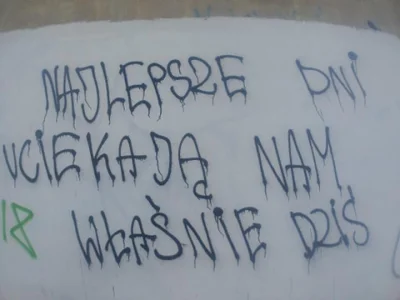 NAJLEPSZE DNI
UCIEKAJĄ NAM
18 WŁAŚNIE DZIŚ